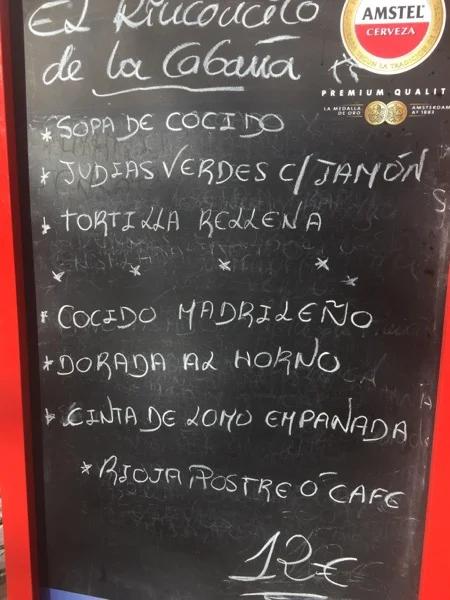 El Rinconcito
de la Cabaña
AMSTEL
CERVEZA
PREMIUM QUALIT
LA MEDALLA
DE ORO
AMSTERDAM
Aº 1883
* SOPA DE COCIDO
* JUDIAS VERDES C/ JAMÓN
* TORTILLA RELLENA
* COCIDO MADRILEÑO
* DORADA AL HORNO
* CINTA DE LOMO EMPAÑADA
* RIOJA POSTRE O CAFE
12€